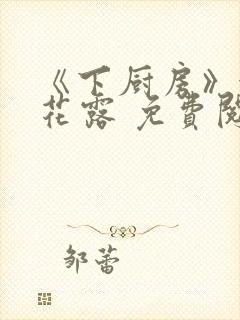 《下厨房》
花露 免費閱
邹蕾